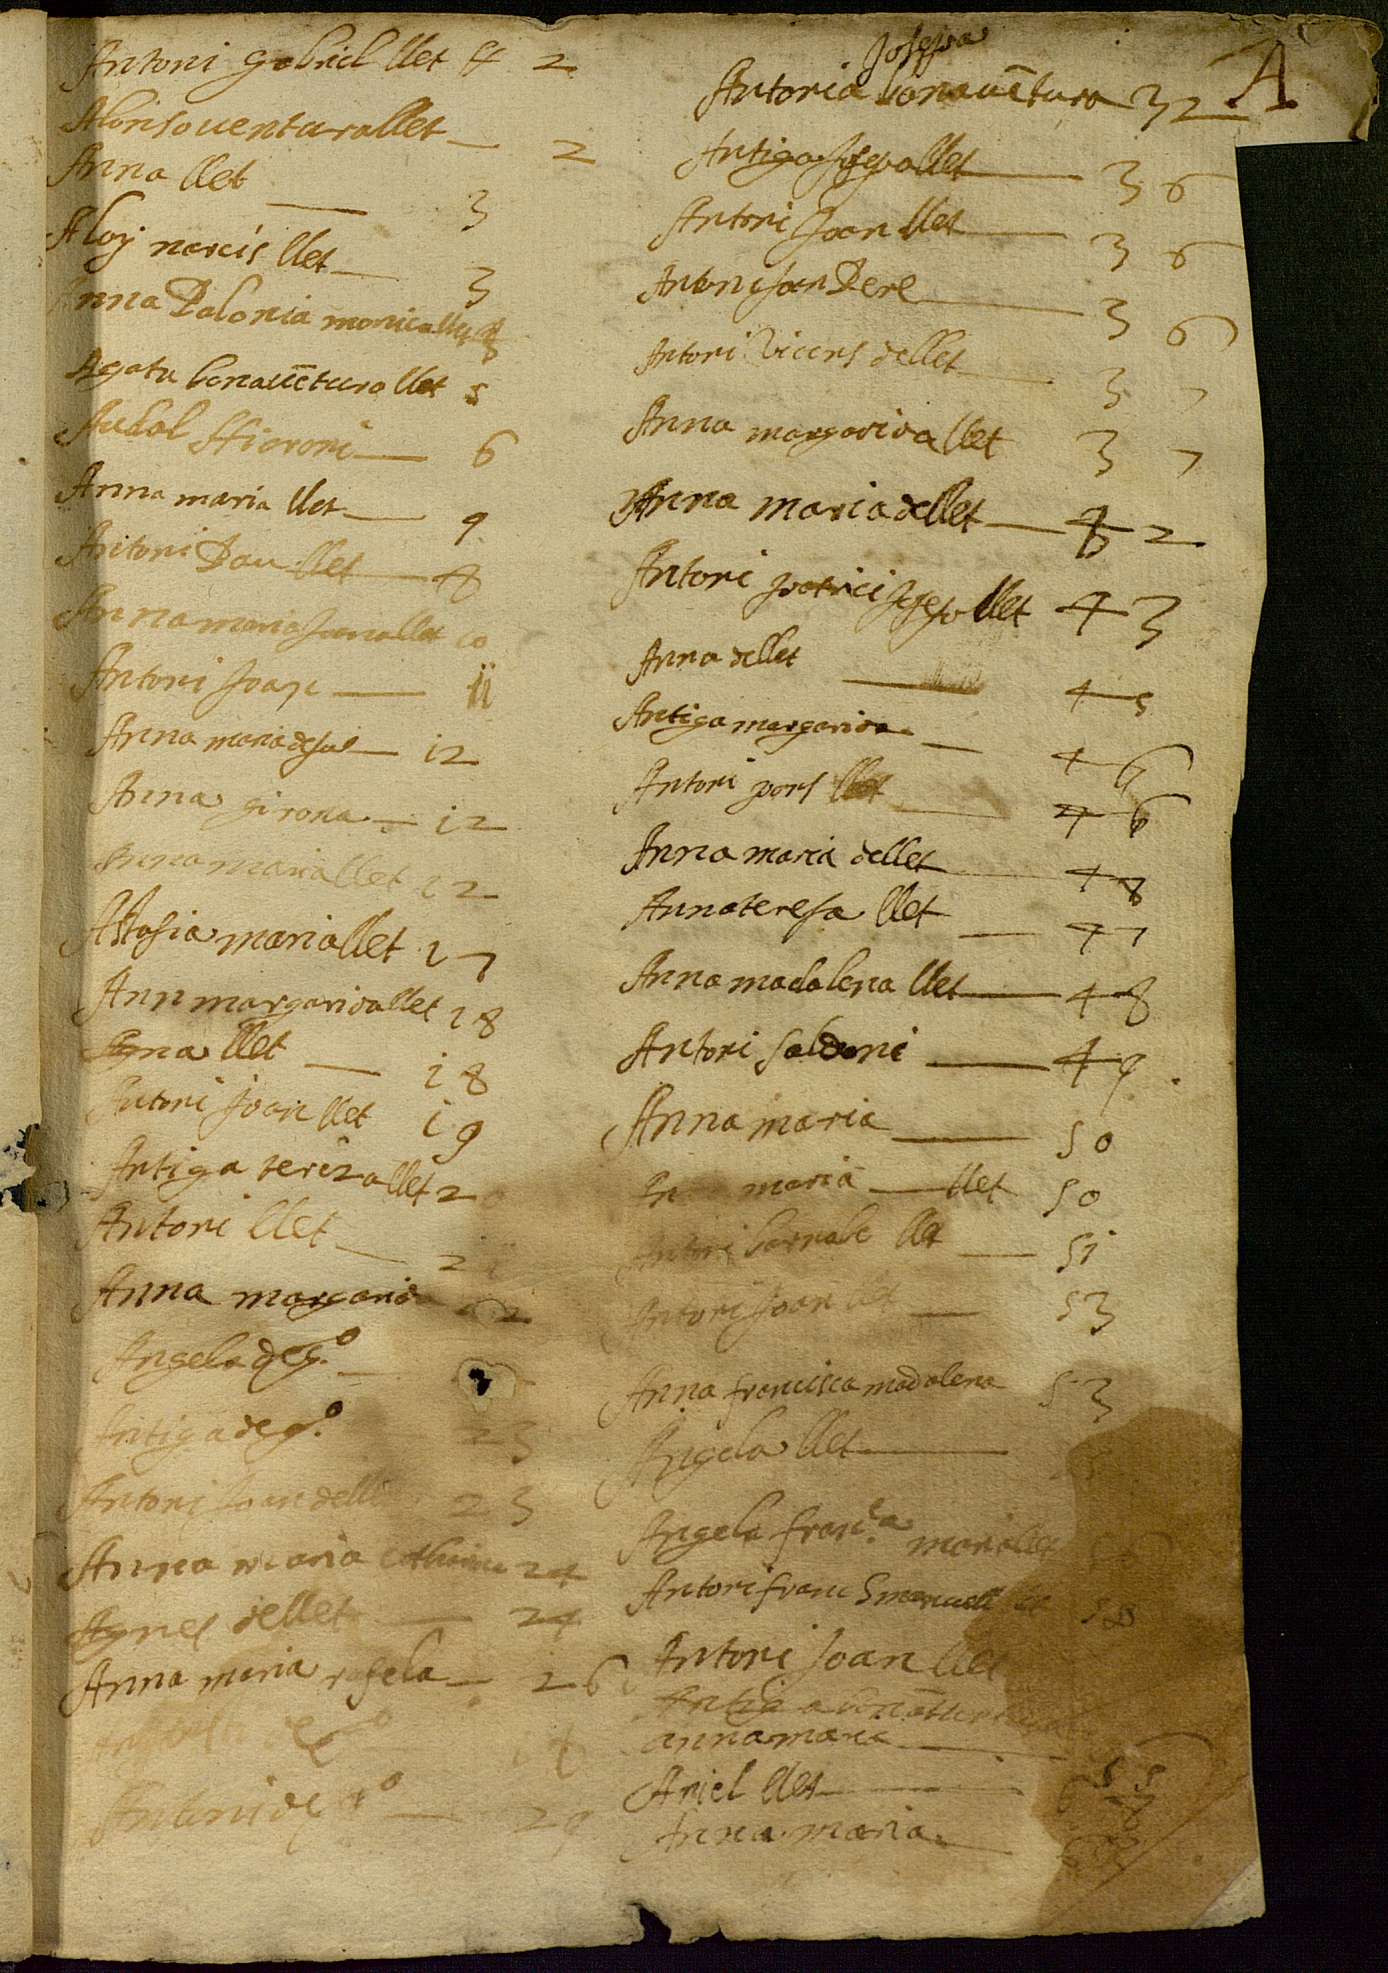 A
Antoni Gabriel llet ff 2
Alonso uentura llet 2
Anna llet 3
Aloy narcis llet 3
Anna Polonia monica
Agata bonauētura llet 5
Audal Hieroni 6
Anna maria llet 9
Antoni Pau llet 8
Anna maria Juana llet 10
Antoni Joan 11
Anna maria 12
Anna girona 12
Anna maria llet 12
Astasia maria llet 17
Ann margarida llet 18
Anna llet 18
Antoni Joan llet 19
Antiga tereza llet 2
Antoni llet 2
Anna margarida 22
Angela de g.º
Antiga de g.º 23
Antoni Joan dellet 23
Anna maria Catharina 24
Agnes dellet 24
Anna maria rafela 26
de gº 28
Antoni de gº 29
Josepa
Antonia bonauētura 32
Antiga Josepa llet 36
Antoni Joan llet 36
Antoni Joan Pere 36
Antoni Vicens dellet 37
Anna margarida llet 37
Anna maria dellet 42
Antoni patrici Josep llet 43
Anna dellet 45
Antiga margarida 46
Antoni pons llet 46
Anna maria dellet 48
Anna teresa llet 47
Anna madalena llet 48
Antoni saldoni 49
Anna maria 50
maria llet 50
Antoni barnabe llet 51
Antoni Joan llet 53
Anna francisca madalena 53
Angela llet
Angela fran.ca maria llet
Antoni franc Smanuell llet 58
Antoni Joan llet
Antiga
anna maria
Ariel llet
Anna maria